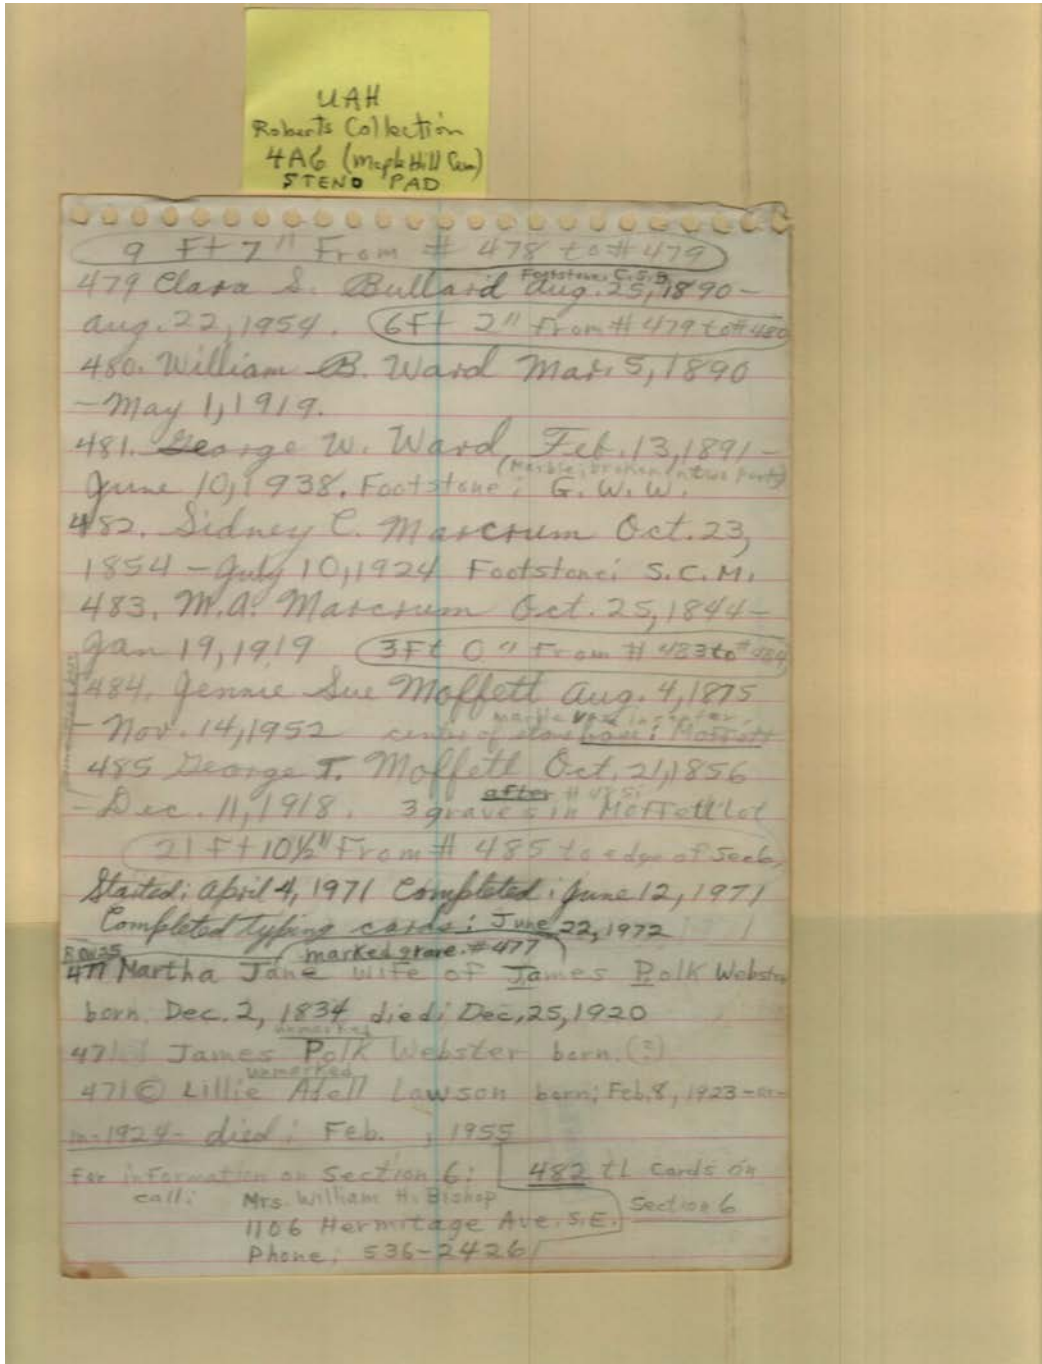 UAH
Roberts Collection
4A6 (Maple Hill Cem)
STENO PAD
9 Ft 7" From # 478 to # 479
Footstone: C.S.B.
479 Clara S. Bullard Aug. 25, 1890 -
Aug. 22, 1954. 6 Ft 2" From # 479 to # 480
480. William B. Ward Mar. 5, 1890
- May 1, 1919.
481. George W. Ward, Feb. 13, 1891 -
(Marble; broken in two parts)
June 10, 1938. Footstone; G. W. W.
482. Sidney C. Marcrum Oct. 23,
1854 - July 10, 1924 Footstone; S.C.M.
483. M.A. Marcrum Oct. 25, 1844 -
Jan 19, 1919 3 Ft 0" From # 483 to # 484
484. Jennie Sue Moffett Aug. 4, 1875
marble vase in center
- Nov. 14, 1952 center of stone base; Moffett
485 George T. Moffett Oct. 21, 1856
after # 485;
- Dec. 11, 1918. 3 graves in Moffett lot
21 Ft 10½" From # 485 to edge of Sec 6,
Started; April 4, 1971 Completed; June 12, 1971
Completed typing cards; June 22, 1972
marked grave. # 477
477 Martha Jane wife of James Polk Webster
born. Dec. 2, 1834 died; Dec. 25, 1920
unmarked
471 James Polk Webster born. (?)
unmarked
471 © Lillie Adell Lawson born; Feb. 8, 1923 - or -
in - 1924 - died; Feb. , 1955
For information on Section 6; 482 tl cards on
call; Mrs. William H. Bishop Section 6
1106 Hermitage Ave. S.E.
Phone; 536-2426